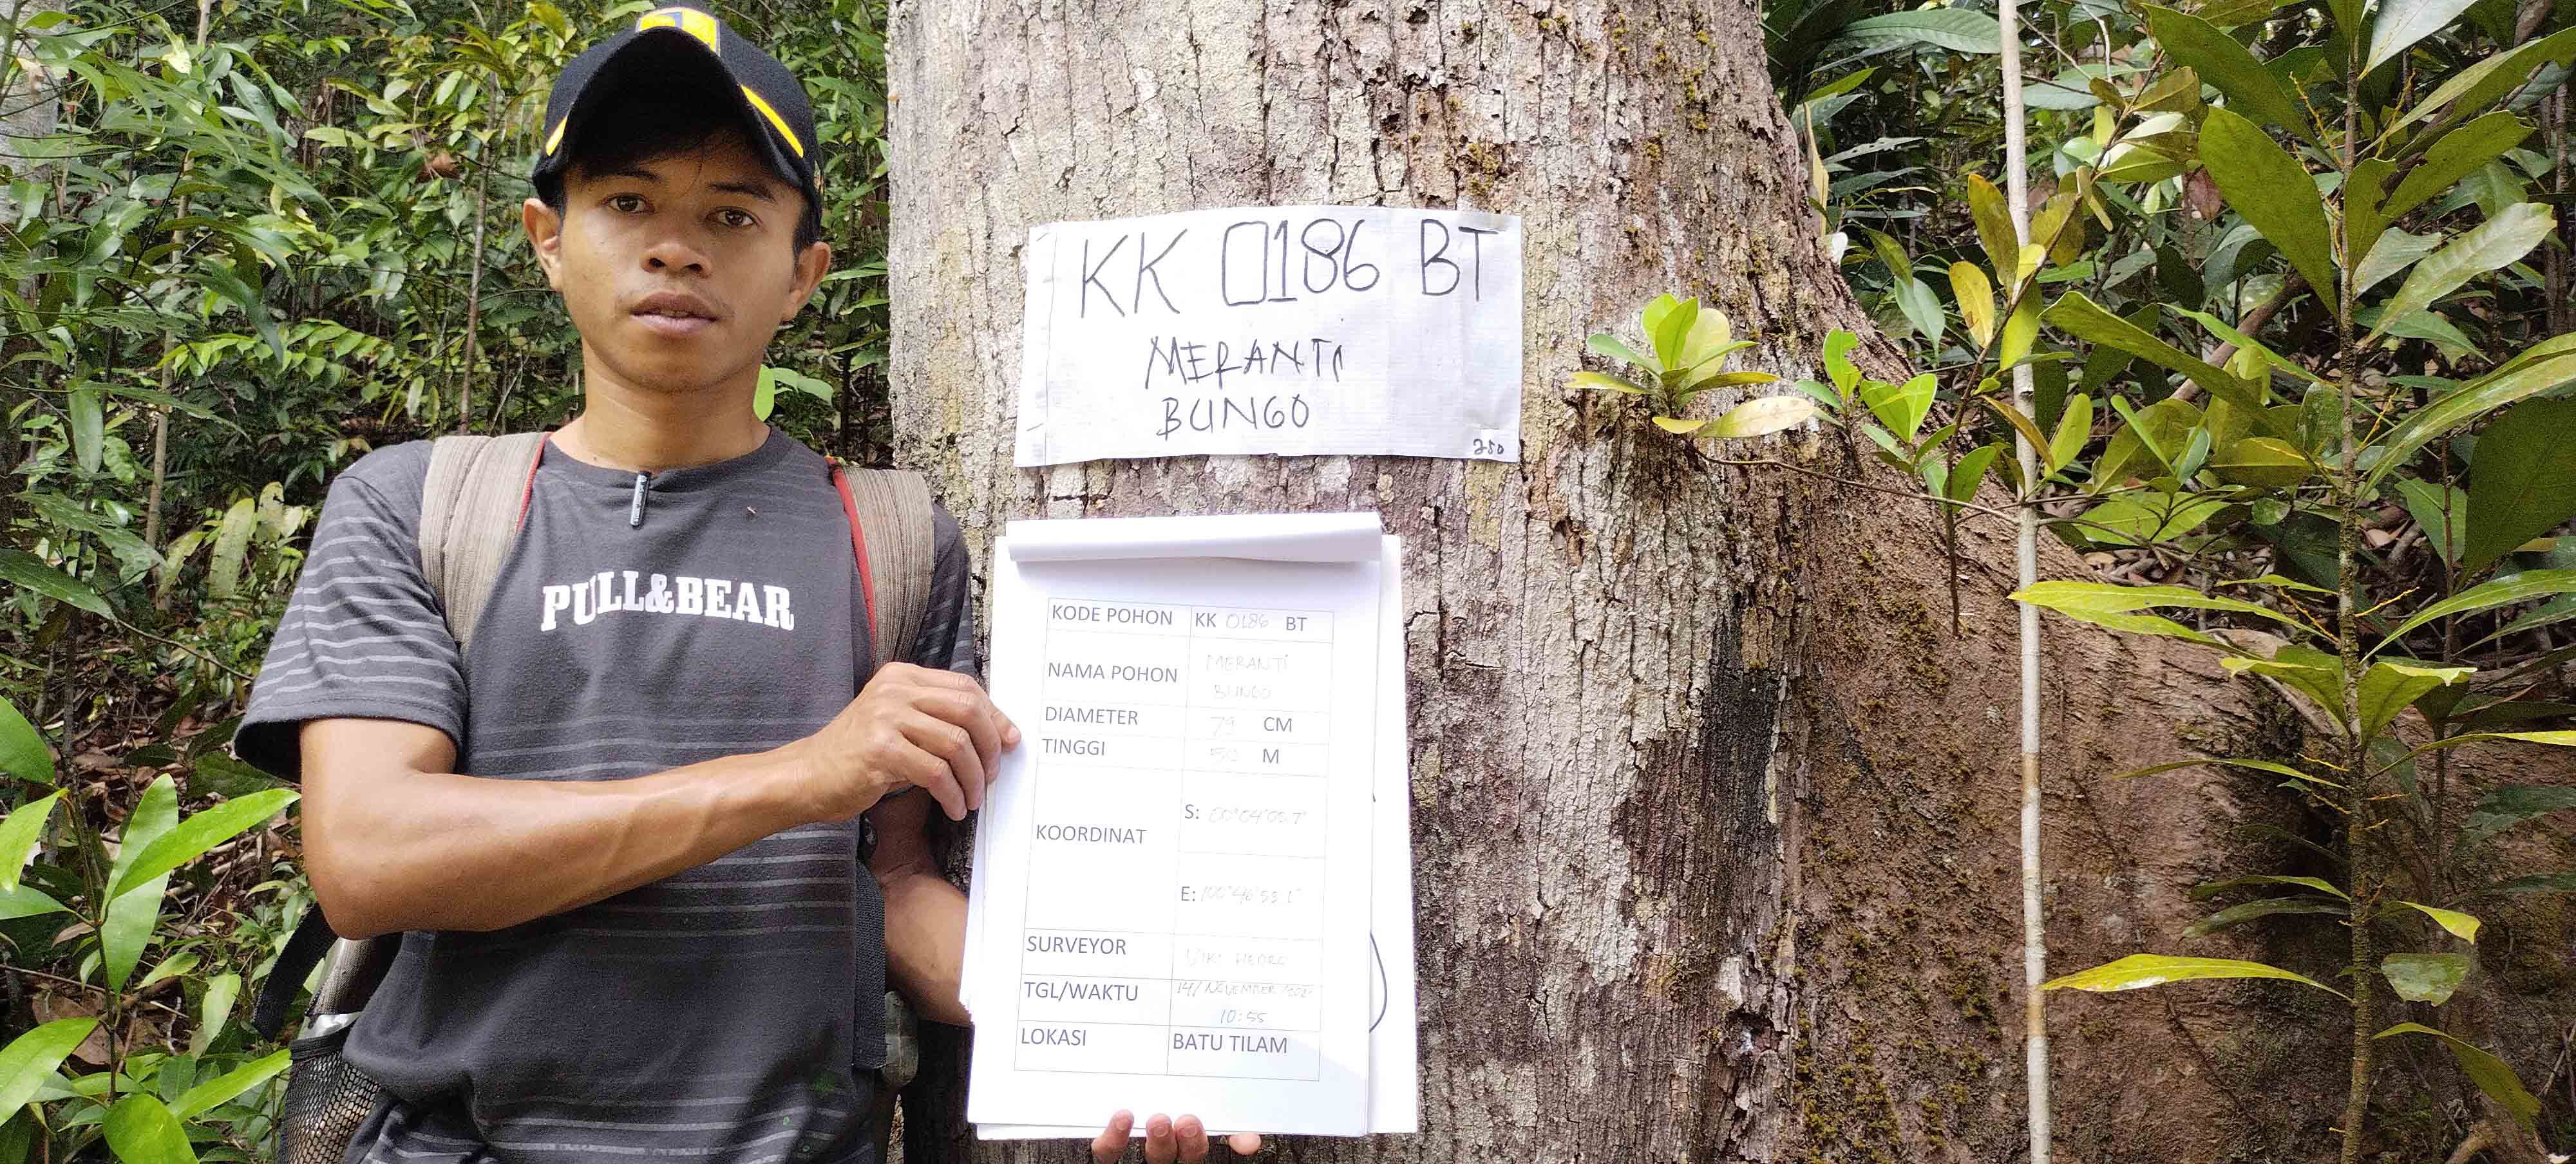 KK 0186 BT
MERANTI
BUNGO
250
PULL&BEAR
KODE POHON KK 0186 BT
NAMA POHON MERANTI
BUNGO
DIAMETER 79 CM
TINGGI 50 M
KOORDINAT
S: 00°04'05.7"
E: 100°46'
SURVEYOR VIKI
TGL/WAKTU 14/NOVEMBER
10:55
LOKASI BATU TILAM